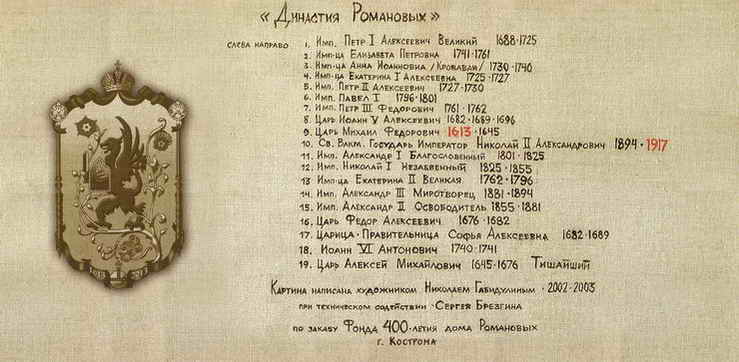 « Династия Романовых »
слева направо
1. Имп. Петр I Алексеевич Великий 1688-1725
2. Имп-ца Елизавета Петровна 1741-1761
3. Имп-ца Анна Иоанновна /Кровавая/ 1730-1740
4. Имп-ца Екатерина I Алексеевна 1725-1727
5. Имп. Петр II Алексеевич 1727-1730
6. Имп. Павел I 1796-1801
7. Имп. Петр III Федорович 1761-1762
8. Царь Иоалн V Алексеевич 1682-1689-1696
9. Царь Михаил Федорович 1613-1645
10. Св. Вмкм. Государь Император Николай II Александрович 1894-1917
11. Имп. Александр I Благословенный 1801-1825
12. Имп. Николай I Незабвенный 1825-1855
13. Имп-ца Екатерина II Великая 1762-1796
14. Имп. Александр III Миротворец 1881-1894
15. Имп. Александр II Освободитель 1855-1881
16. Царь Федор Алексеевич 1676-1682
17. Царица-Правительница Софья Алексеевна 1682-1689
18. Иоанн VI Антонович 1740-1741
19. Царь Алексей Михайлович 1645-1676 Тишайший
Картина написана художником Николаем Габидулиным · 2002-2003
при техническом содействии · Сергея Брезгина
по заказу Фонда 400-летия дома Романовых
г. Кострома
1613 2013